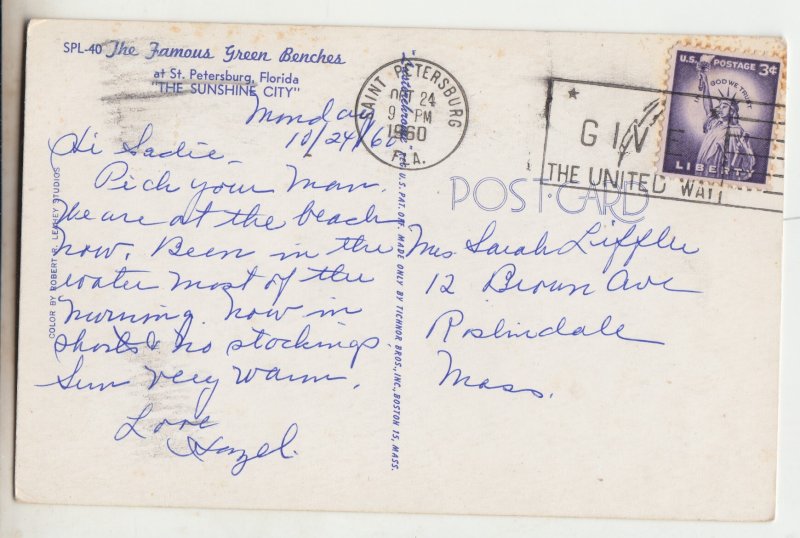 SPL-40 The Famous Green Benches
at St. Petersburg, Florida
"THE SUNSHINE CITY"
Monday
10/24/60
Hi Sadie –
Pick your Man.
We are at the beach
now. Been in the
water most of the
morning. Now in
shorts & no stockings.
Sun very warm.
Love
Hazel.
COLOR BY ROBERT R. LEAHEY STUDIOS
REG. U.S. PAT. OFF. MADE ONLY BY TICHNOR BROS., INC., BOSTON 15, MASS.
SAINT PETERSBURG
OCT 24
9 PM
1960
FLA.
GIVE
THE UNITED WAY
U.S. POSTAGE 3¢
IN GOD WE TRUST
LIBERTY
POST CARD
Mrs. Sarah Liffler
12 Brown Ave
Roslindale
Mass.